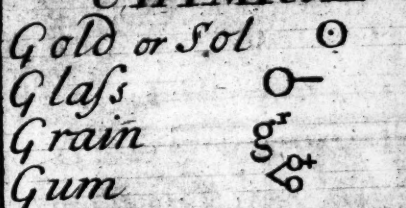 Gold or Sol ☉
Glaſs
Grain gr
Gum